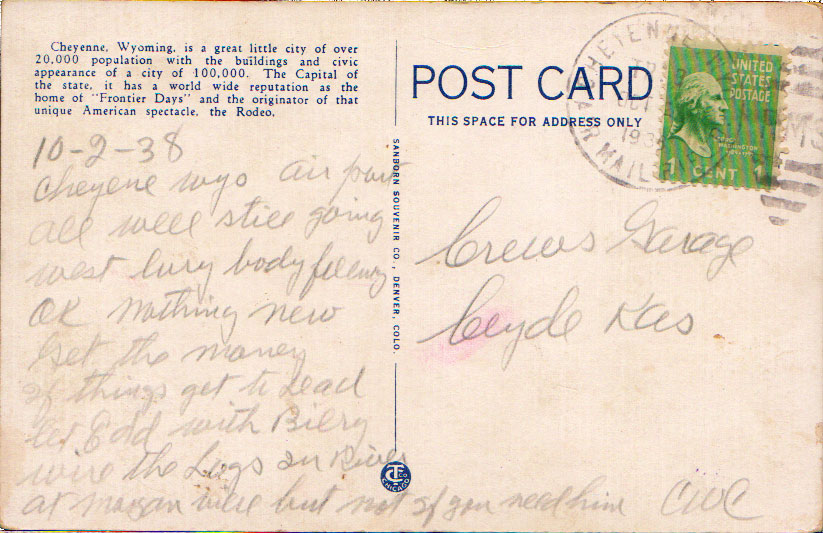 Cheyenne, Wyoming, is a great little city of over
20,000 population with the buildings and civic
appearance of a city of 100,000. The Capital of
the state, it has a world wide reputation as the
home of "Frontier Days" and the originator of that
unique American spectacle, the Rodeo.
10-2-38
Cheyene Wyo air port
all well still going
west body feeling
OK Nothing new
Get the money
if things get to
let Edd with
wire the
at but not if you need him CWC
SANBORN SOUVENIR CO., DENVER, COLO.
CT CO
CHICAGO
POST CARD
THIS SPACE FOR ADDRESS ONLY
CHEYENNE
OCT
193
AIR MAIL
UNITED
STATES
POSTAGE
WASHINGTON
1 CENT 1
Crews Garage
Clyde Kas